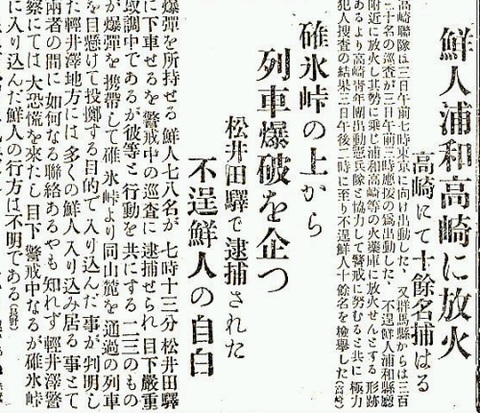 鮮人浦和高崎に放火
高崎にて十餘名捕はる
高崎聯隊は三日午前七時東京に向け出動した、又群馬縣からは三百
二十名の巡査が三日午前三時應援の爲出動した、不逞鮮人浦和縣廳
附近に放火し其勢に乘じ浦和高崎等の火藥庫に放火せんとする形跡
あるより高崎靑年團出動憲兵隊と協力して警戒に努むると共に極力
犯人搜査の結果三日午後二時に至り不逞鮮人十餘名を檢擧した(宮崎)
碓氷峠の上から
列車爆破を企つ
松井田驛で逮捕された
不逞鮮人の自白
爆彈を所持せる鮮人七八名が七時十三分松井田驛
に下車せるを警戒中の巡査に逮捕せられ目下嚴重
取調中であるが彼等と行動を共にする一二三のもの
が爆彈を携帶して碓氷峠より同山麓を通過の列車
を目懸けて投擲する目的で入り込んだ事が判明し
た輕井澤地方には多くの鮮人入り込み居る事とて
兩者の間に如何なる聯絡あるやも知れず輕井澤警
察にては大恐慌を來たし目下警戒中なるが碓氷峠
に入り込んだ鮮人の行方は不明である(長野)